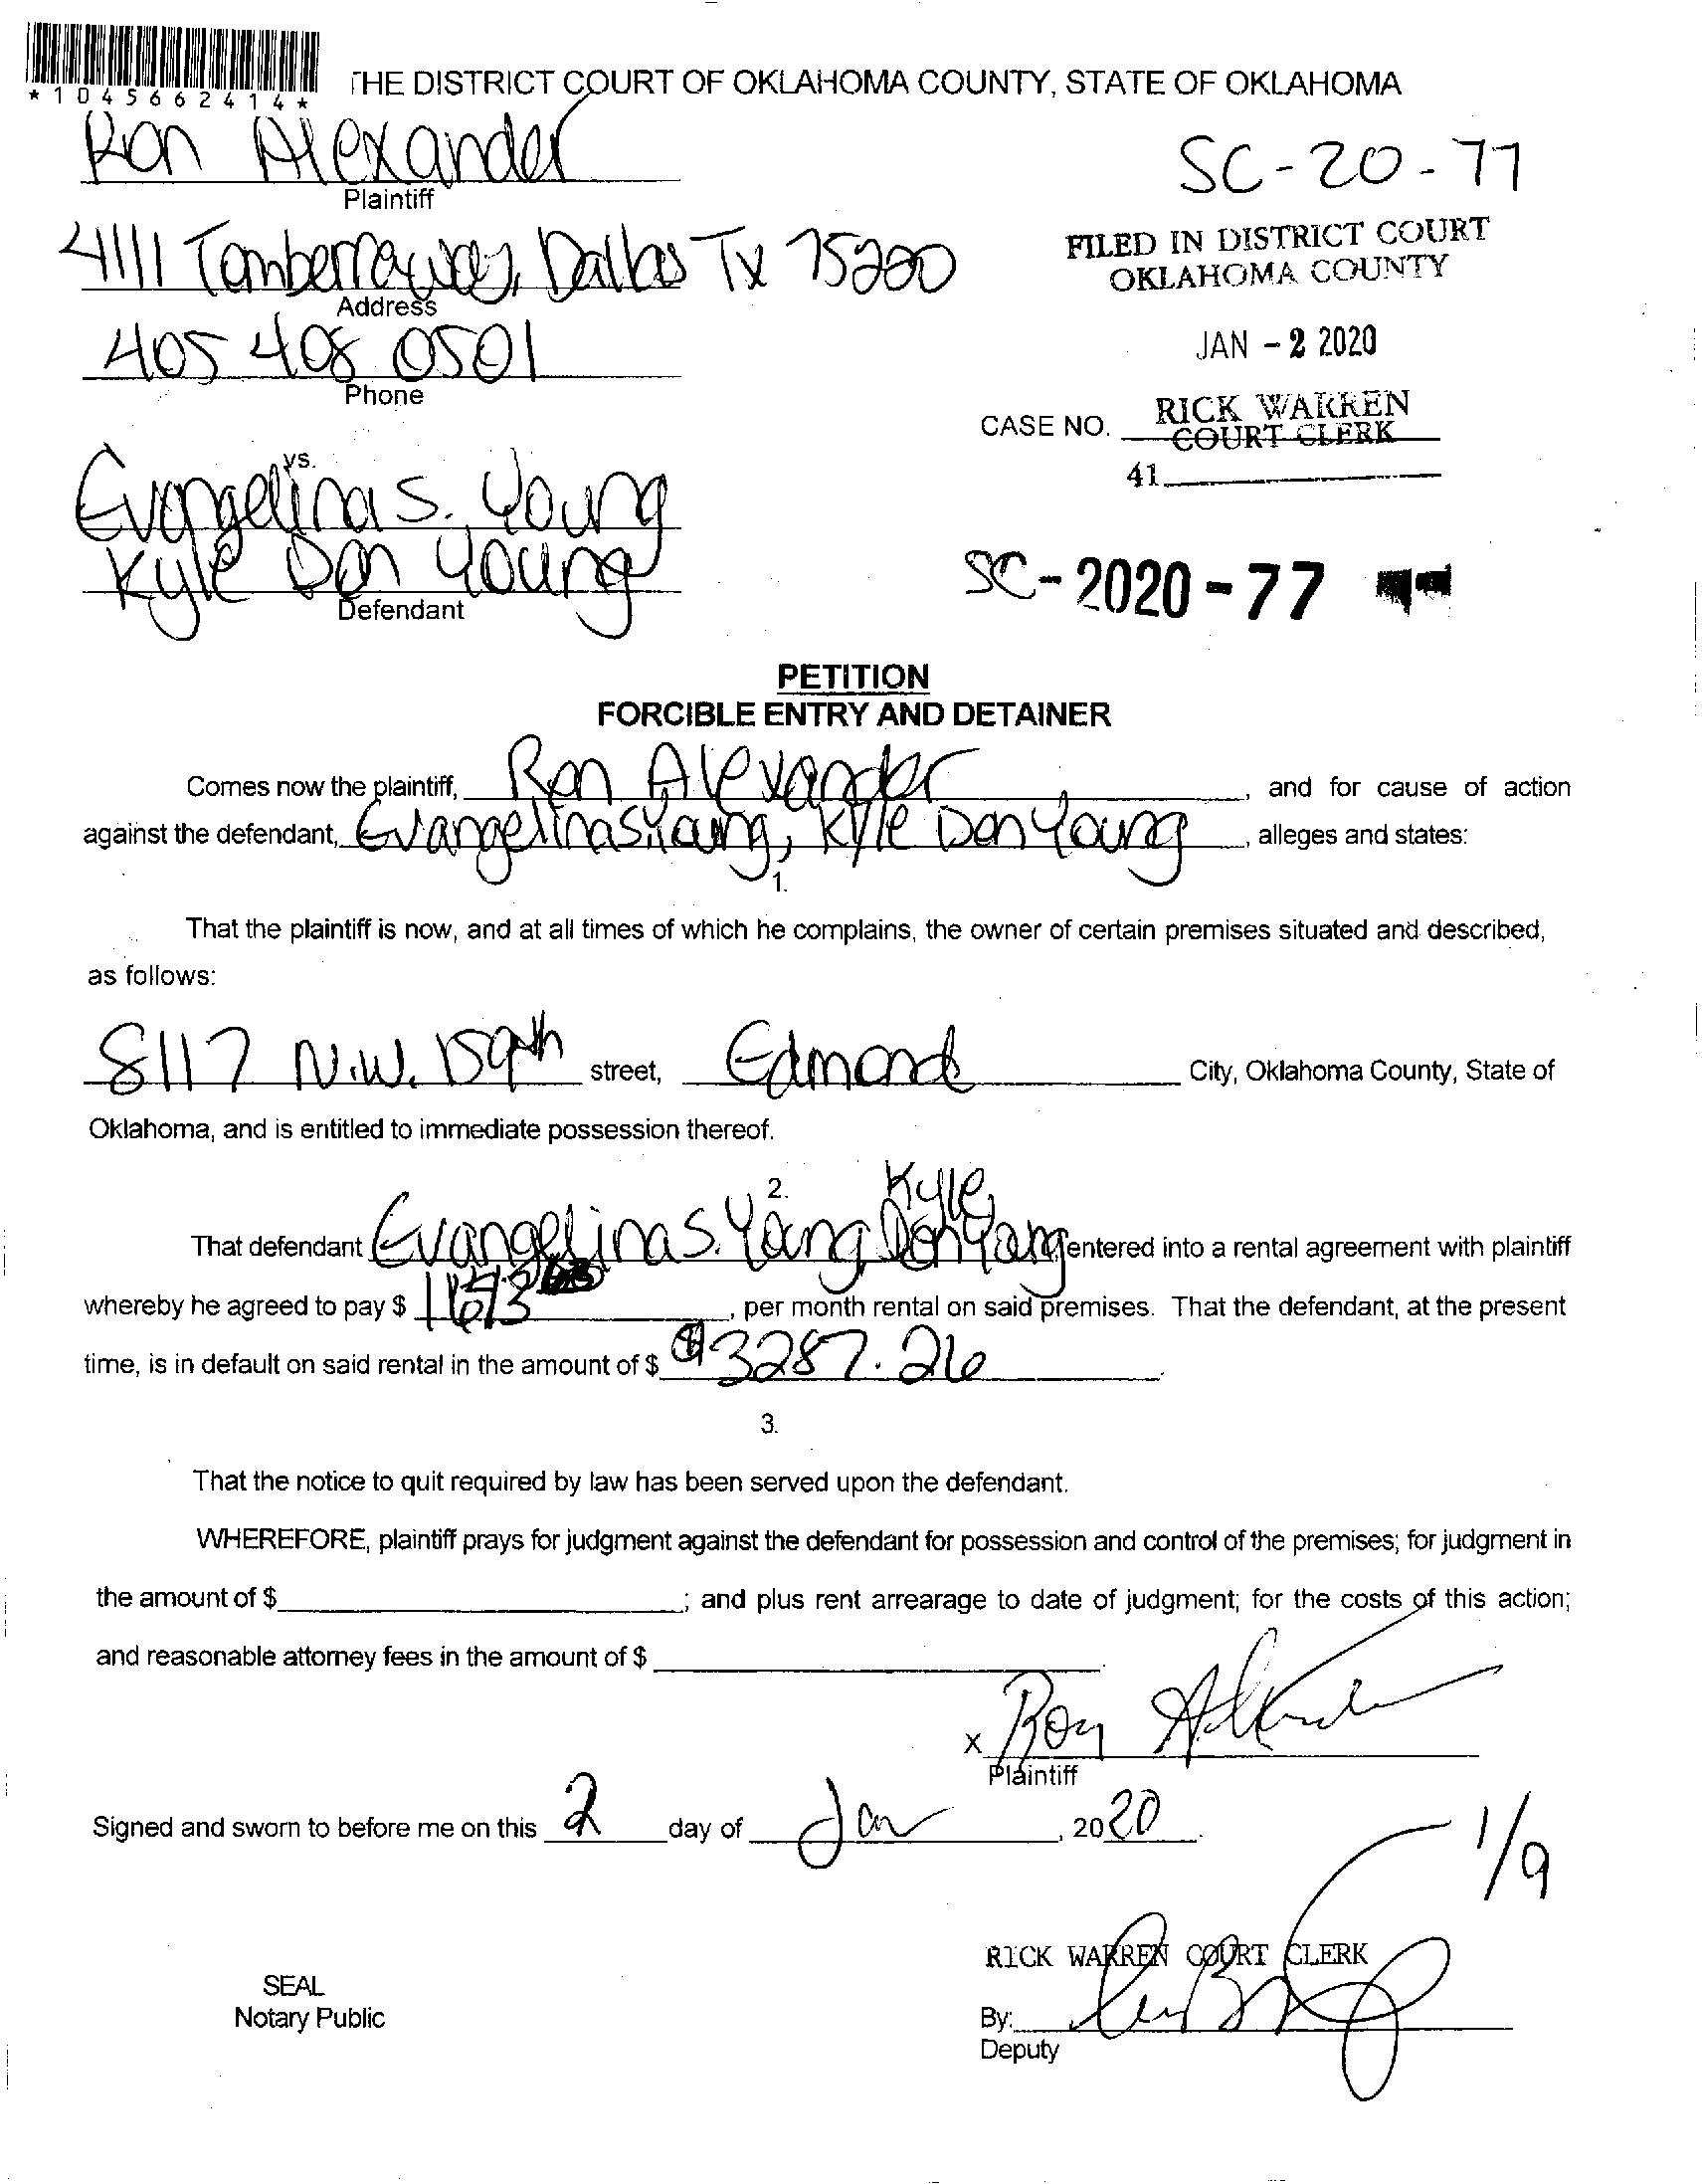 *1045662414*
THE DISTRICT COURT OF OKLAHOMA COUNTY, STATE OF OKLAHOMA
Ron Alexander
Plaintiff
SC-20-77
4111 Tamberraway, Dallas Tx 75220
Address
FILED IN DISTRICT COURT
OKLAHOMA COUNTY
JAN - 2 2020
405 408 0501
Phone
RICK WARREN
CASE NO. COURT CLERK
41
vs.
Evangelina S. Young
Kyle Don Young
Defendant
SC-2020-77
PETITION
FORCIBLE ENTRY AND DETAINER
Comes now the plaintiff, Ron Alexander, and for cause of action
against the defendant, Evangelina S. Young, Kyle Don Young, alleges and states:
1.
That the plaintiff is now, and at all times of which he complains, the owner of certain premises situated and described,
as follows:
8117 N.W. 159th street, Edmond City, Oklahoma County, State of
Oklahoma, and is entitled to immediate possession thereof.
2.
That defendant Evangelina S. Young, Kyle Don Young entered into a rental agreement with plaintiff
whereby he agreed to pay $ , per month rental on said premises. That the defendant, at the present
time, is in default on said rental in the amount of $ $3287.26.
3.
That the notice to quit required by law has been served upon the defendant.
WHEREFORE, plaintiff prays for judgment against the defendant for possession and control of the premises; for judgment in
the amount of $ ; and plus rent arrearage to date of judgment; for the costs of this action;
and reasonable attorney fees in the amount of $ .
x Ron Alexander
Plaintiff
Signed and sworn to before me on this 2 day of Jan, 2020.
1/9
RICK WARREN COURT CLERK
SEAL
Notary Public
By:
Deputy